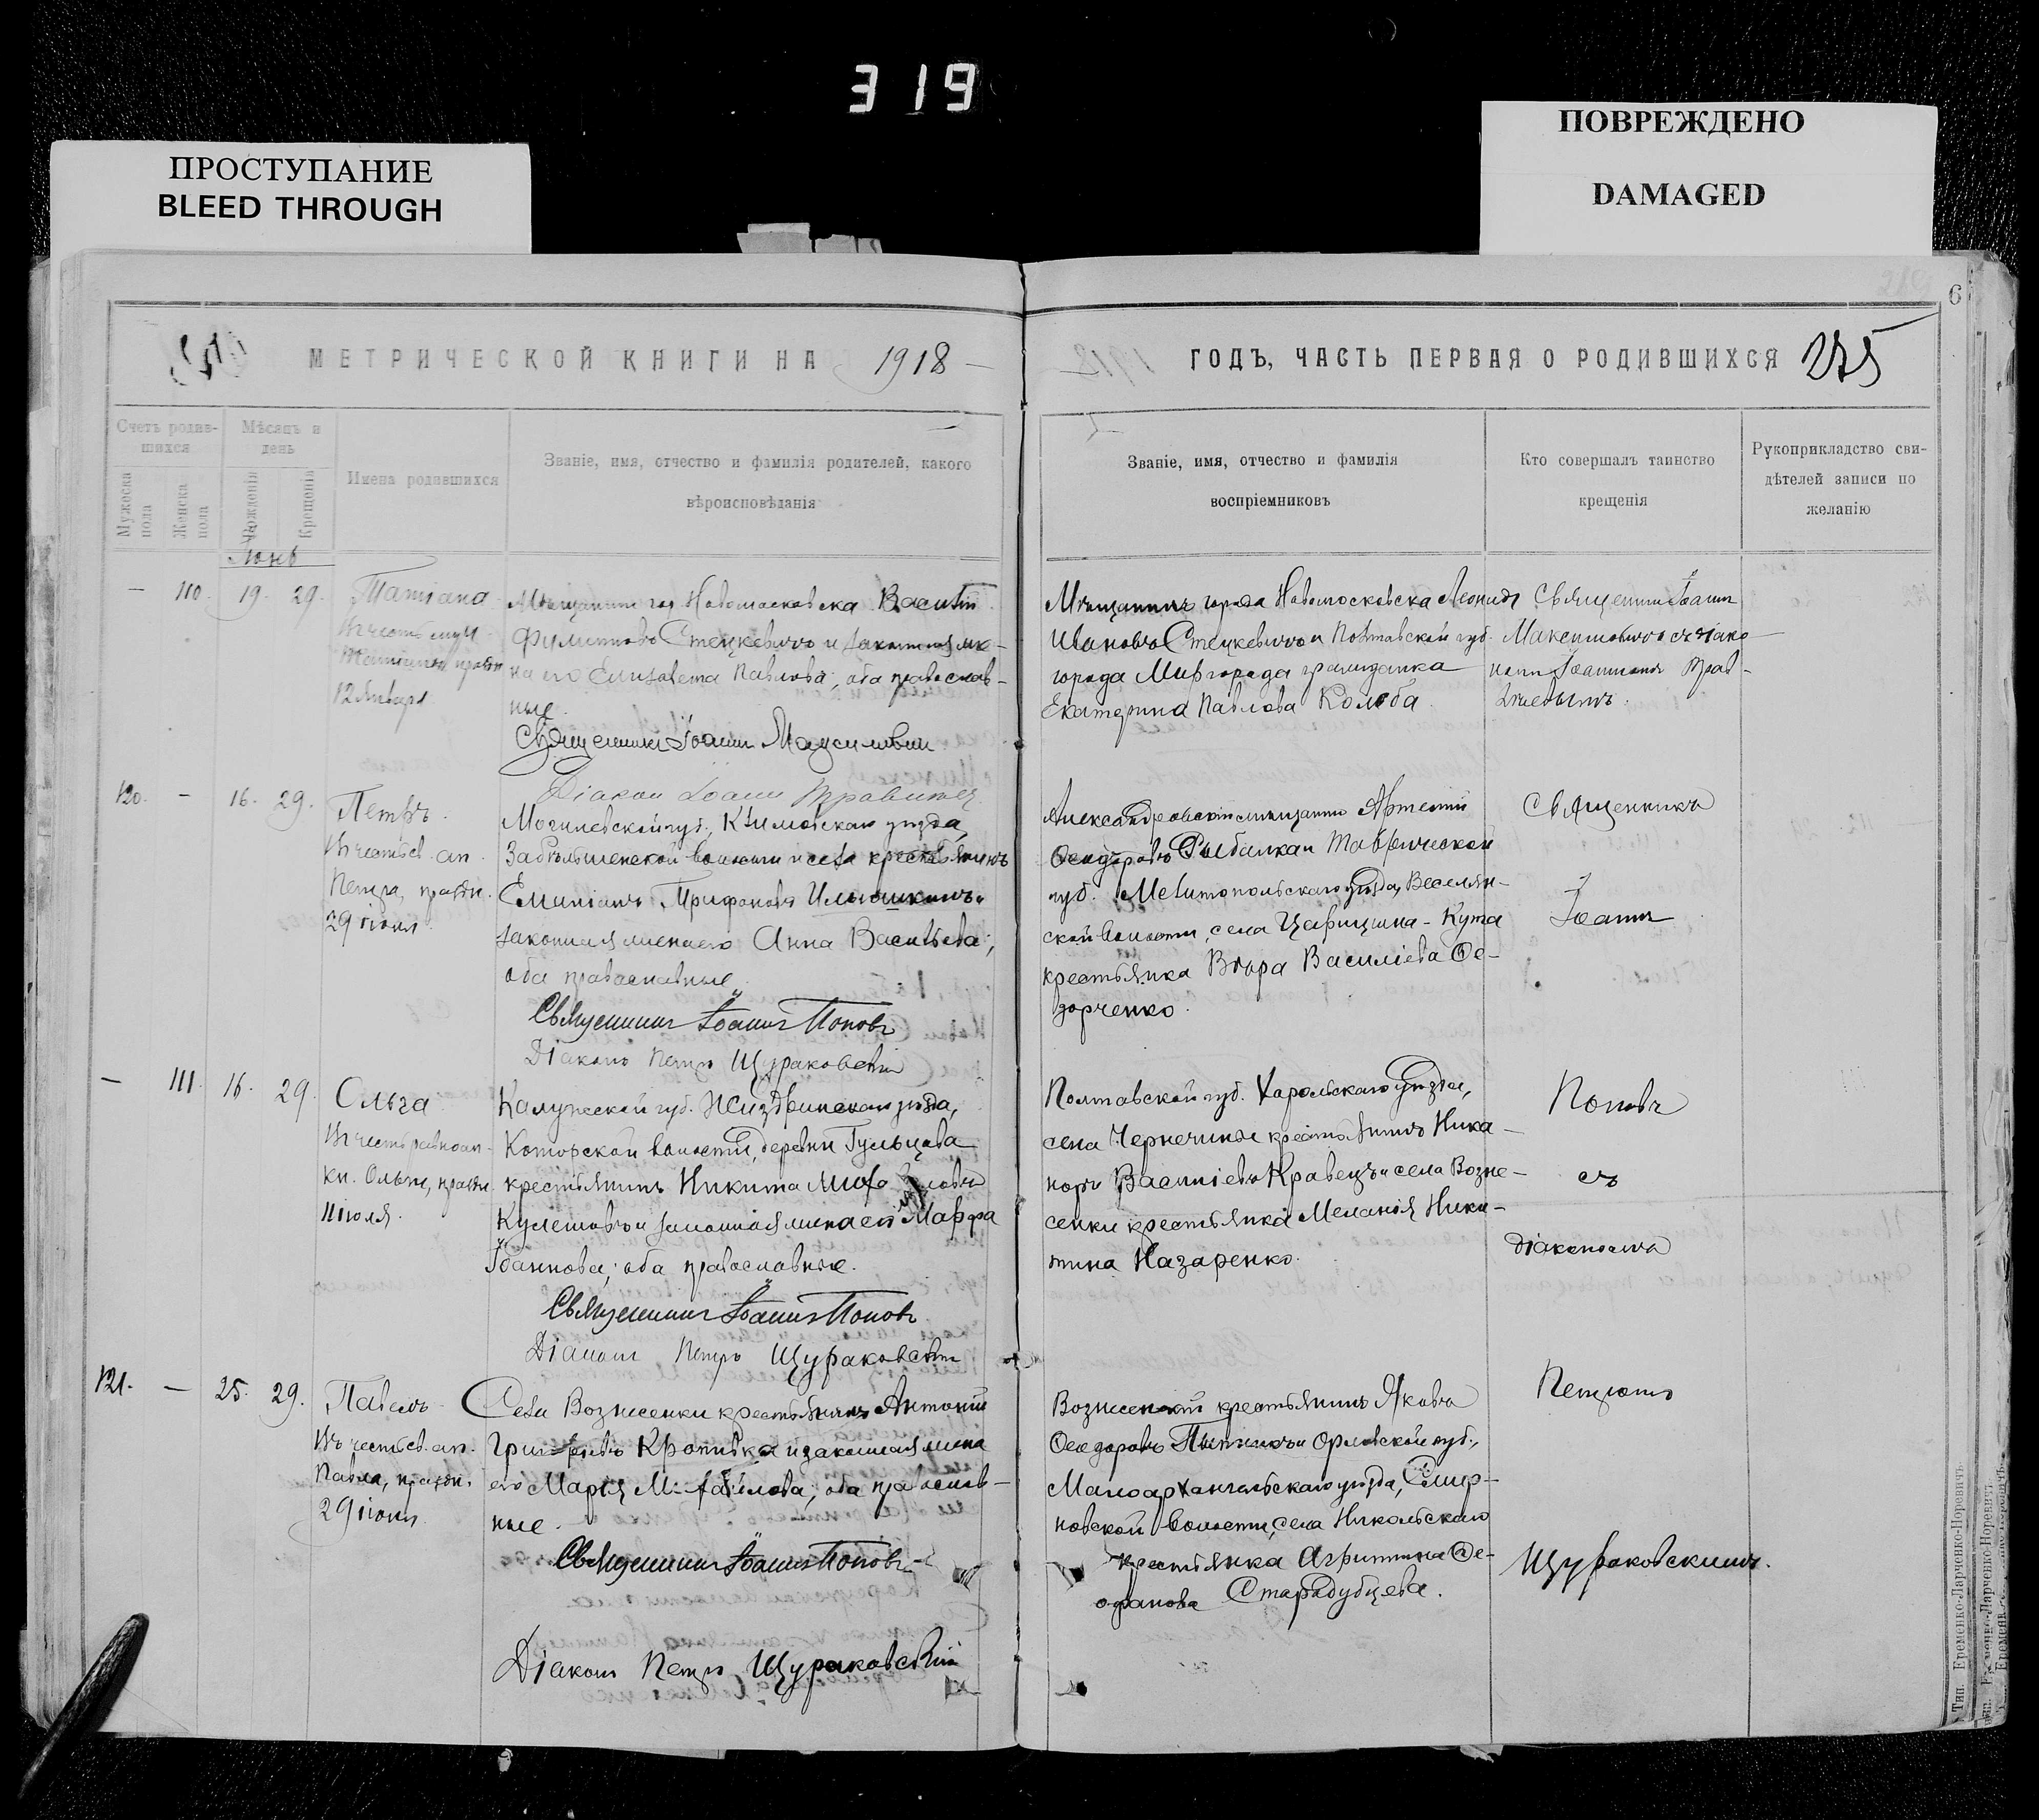 319
ПРОСТУПАНИЕ
BLEED THROUGH
ПОВРЕЖДЕНО
DAMAGED
6
МЕТРИЧЕСКОЙ КНИГИ НА 1918
ГОДЪ, ЧАСТЬ ПЕРВАЯ О РОДИВШИХСЯ 275
Счетъ родив-
шихся
Мѣсяцъ и
день
Мужеска
пола
Женска
пола
Рожденія
Крещенія
Имена родившихся
Званіе, имя, отчество и фамилія родителей, какого
вѣроисповѣданія
Званіе, имя, отчество и фамилія
воспріемниковъ
Кто совершалъ таинство
крещенія
Рукоприкладство сви-
дѣтелей записи по
желанію
Іюнь
— 110. 19. 29. Татіана
Въ честь муч.
Татіаны, праздн.
12 Января
Мѣщанинъ гор. Новомосковска Василій
Филипповъ Стецкевичъ и законная же-
на его Елизавета Павлова, оба православ-
ные.
Священникъ Іоаннъ Максимовичъ
Діаконъ Іоаннъ
Мѣщанинъ города Новомосковска Леонидъ
Ивановъ Стецкевичъ и Полтавской губ.
города Миргорода гражданка
Екатерина Павлова Колоба.
Священникъ Іоаннъ
Максимовичъ съ діако-
номъ Іоанномъ
120. — 16. 29. Петръ.
Въ честь св. ап.
Петра, праздн.
29 іюня
Могилевской губ., Климовскаго уѣзда,
волости и села крестьянинъ
Емиліанъ Трифоновъ Илюшкинъ и
законная жена его Анна Васильева,
оба православные.
Священникъ Іоаннъ Поповъ
Діаконъ Петръ Щураковскій
Александровскій мѣщанинъ Артемій
Ѳеодоровъ Рыбалка и Таврической
губ. Мелитопольскаго уѣзда, Веселян-
ской волости, села Царицына-Кута
крестьянка Вѣра Василіева Ѳе-
дорченко.
Священникъ
Іоаннъ
— 111. 16. 29. Ольга
Въ честь равноап.
кн. Ольги, праздн.
11 іюля.
Калужской губ. Жиздринскаго уѣзда,
Которской волости, деревни Гульцова
крестьянинъ Никита Михаиловъ
Кулешовъ и законная жена его Марфа
Іоаннова; оба православные.
Священникъ Іоаннъ Поповъ
Діаконъ Петръ Щураковскій
Полтавской губ. Хорольскаго уѣзда,
села крестьянинъ Ника-
норъ Василіевъ Кравецъ и села Возне-
сенки крестьянка Меланія Ники-
тина Назаренко.
Поповъ
съ
діакономъ
121. — 25. 29. Павелъ
Въ честь св. ап.
Павла, праздн.
29 іюня
Села Вознесенки крестьянинъ Антоній
Григоріевъ Кропивка и законная жена
его Марія Михаилова, оба православ-
ные.
Священникъ Іоаннъ Поповъ
Діаконъ Петръ Щураковскій
Вознесенскій крестьянинъ Яковъ
Ѳеодоровъ и Орловской губ.,
Малоархангельскаго уѣзда,
новской волости, села Никольскаго
крестьянка Агриппина Ѳе-
офанова Старадубцева.
Петромъ
Щураковскимъ.
Тип. Еременко-Ларченко-Норевичъ.